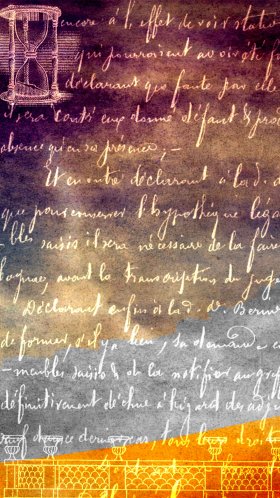 encore à l'effet de voir statu
qui pourraient avoir été fa
déclarant que faute par elle
il sera contr'eux donné défaut & pro
absence qu'en sa présence ; —
Et en outre déclarant à la d.
que pour conserver l'hypothèque léga
bles saisis il sera nécessaire de la faire
avant la transcription du juge
Déclarant enfin à la d. d. Berne
de former, s'il y a lieu, sa demande
meubles saisis & de la notifier au gre
définitivement déchue à l'égard des adj
tous leurs droits